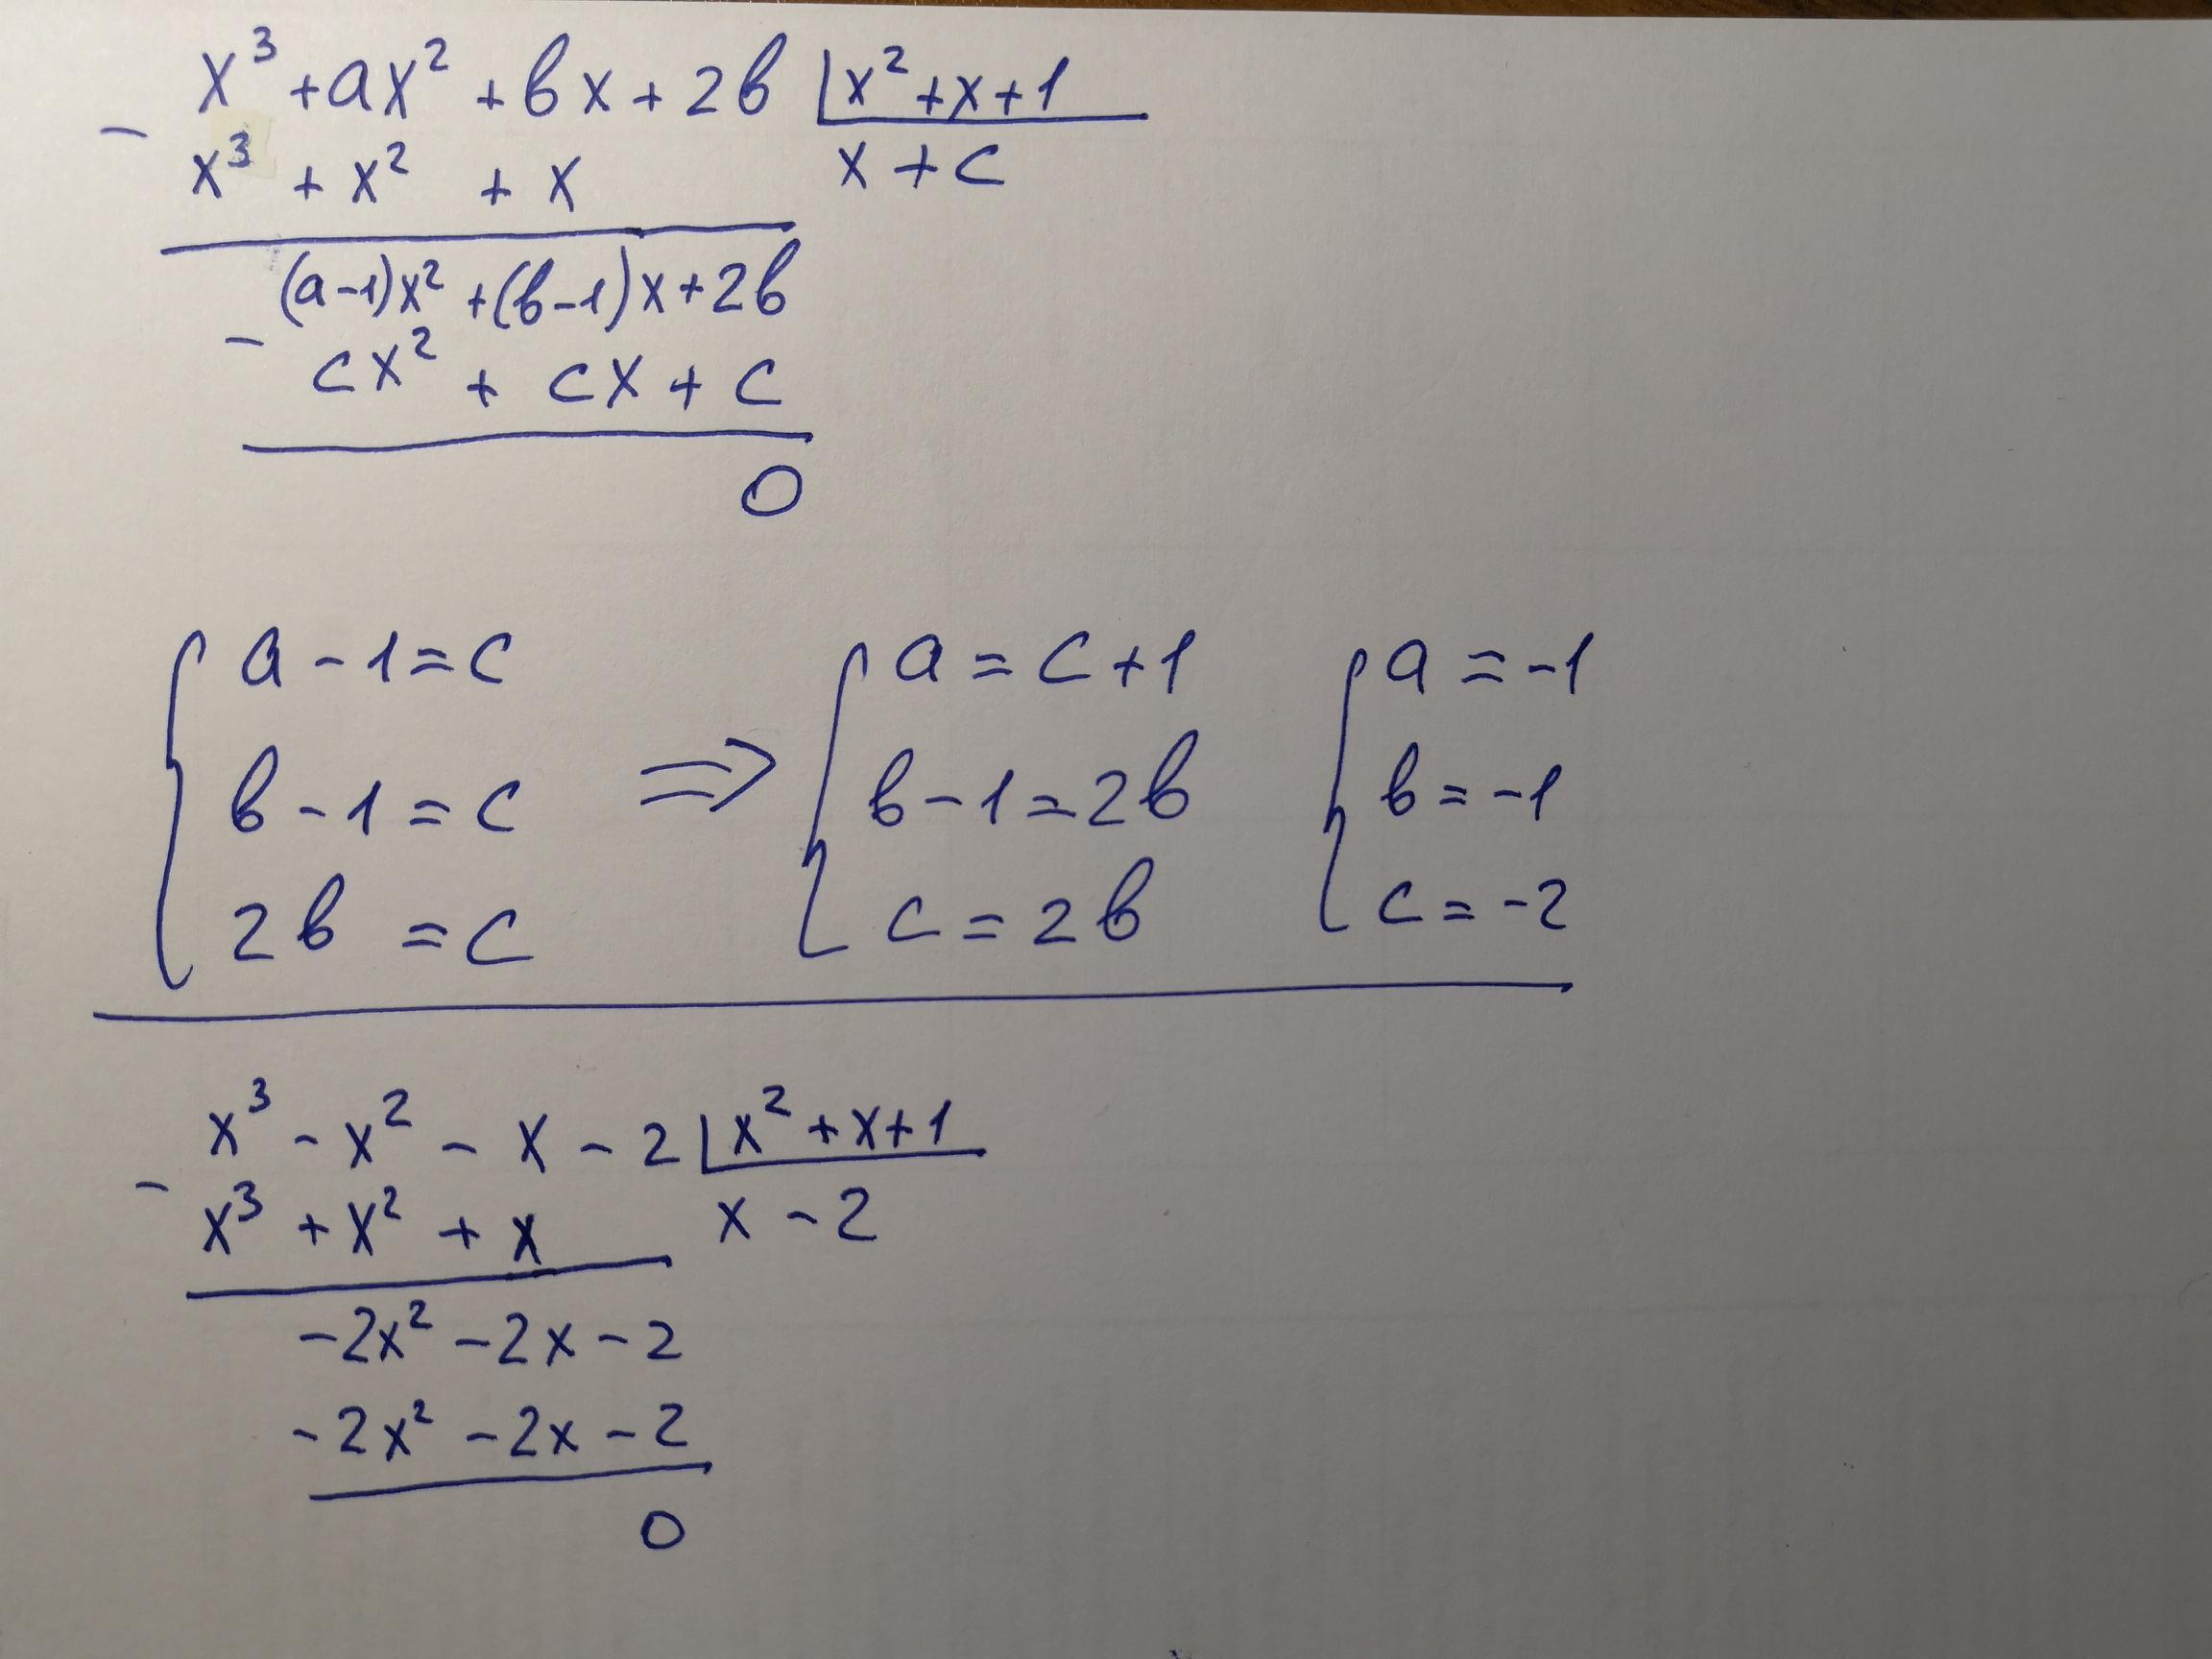 x³ + ax² + bx + 2b | x² + x + 1
− x³ + x² + x x + c
(a−1)x² + (b−1)x + 2b
− cx² + cx + c
0
{ a − 1 = c { a = c + 1 { a = −1
b − 1 = c ⇒ b − 1 = 2b b = −1
2b = c c = 2b c = −2
x³ − x² − x − 2 | x² + x + 1
− x³ + x² + x x − 2
−2x² − 2x − 2
−2x² − 2x − 2
0